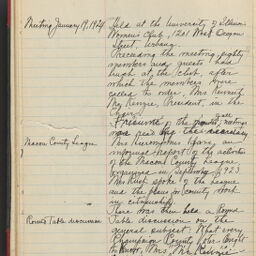 Meeting January 19, 1924
Held at the University of Illinois
Woman's Club, 1201 West Oregon
Street, Urbana.
Preceding the meeting, eighty
members and guests had
lunch at the club, after
which the members were
called to order, Mrs
Mc Kenzie, President, in the
Chair.
Minutes of the meetings
was read by the secretary
Macon County League
Mrs gave, an
informal report of the activities
of the Macon County League
organized in September 1923
Mrs spoke of the League
and the plans for county work
in citizenship.
Round Table Discussion
There was then held a Round
Table discussion on the
general subject "What every
Champaign County Voter Ought
to Know." Mrs. Mc Kenzie